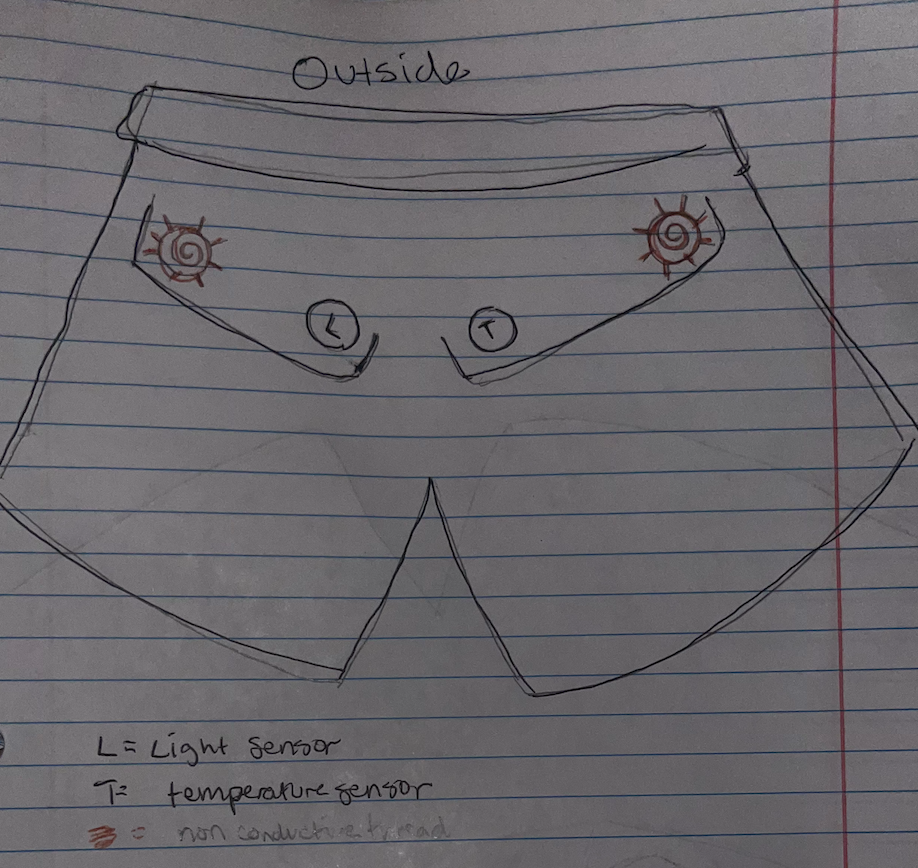 Outside
L
T
L = Light sensor
T= temperature sensor
= non conductive thread